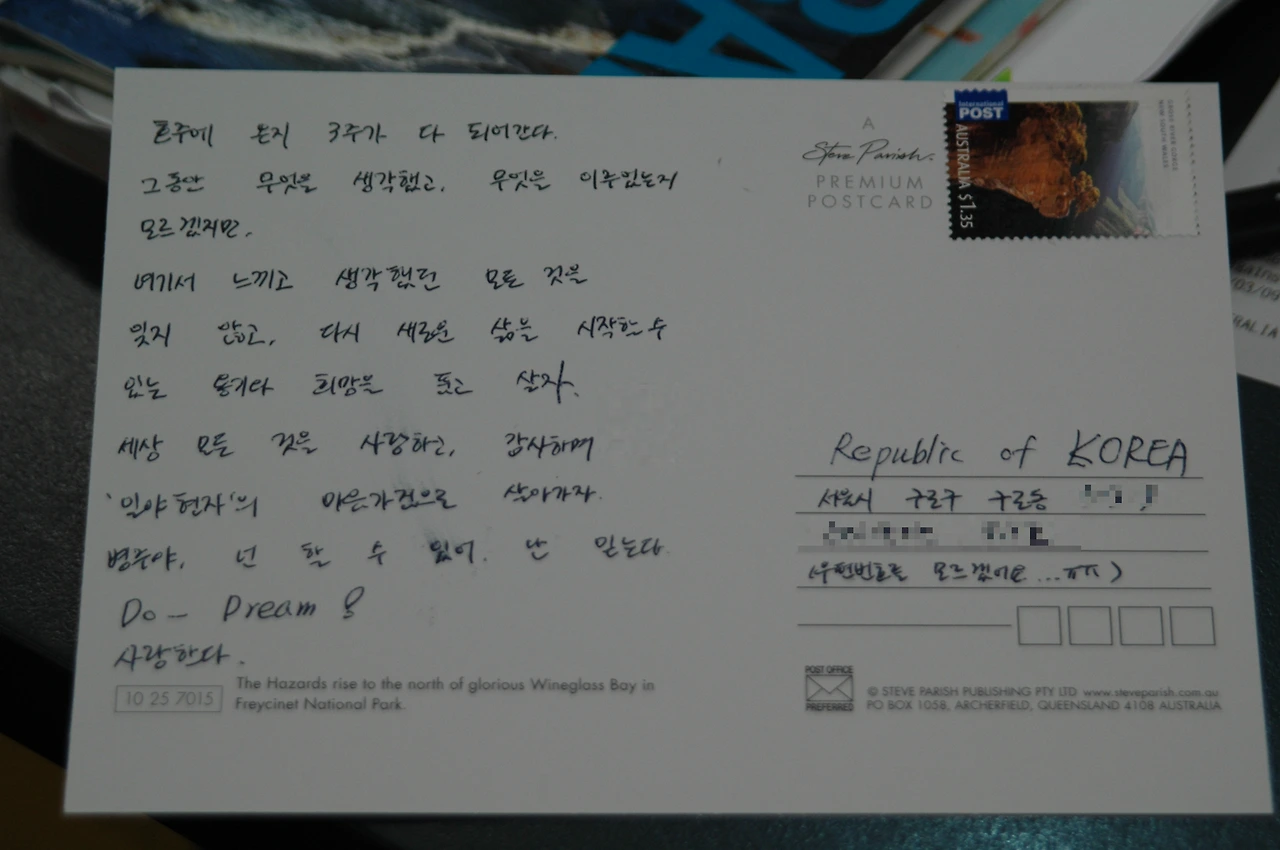 호주에 온지 3주가 다 되어간다.
그동안 무엇을 생각했고, 무엇을 이루었는지
모르겠지만,
여기서 느끼고 생각했던 모든 것을
잊지 않고, 다시 새로운 삶을 시작할 수
있는 용기와 희망을 품고 살자.
세상 모든 것을 사랑하고, 감사하며
'일야현자'의 마음가짐으로 살아가자.
병주야, 넌 할 수 있어. 난 믿는다.
Do - Dream !
사랑한다.
10 25 7015
The Hazards rise to the north of glorious Wineglass Bay in
Freycinet National Park.
A
Steve Parish.
PREMIUM
POSTCARD
International
POST
AUSTRALIA $1.35
Republic of KOREA
서울시 구로구 구로동
(우편번호를 모르겠어요...ㅠㅠ)
POST OFFICE
PREFERRED
© STEVE PARISH PUBLISHING PTY LTD www.steveparish.com.au
PO BOX 1058, ARCHERFIELD, QUEENSLAND 4108 AUSTRALIA